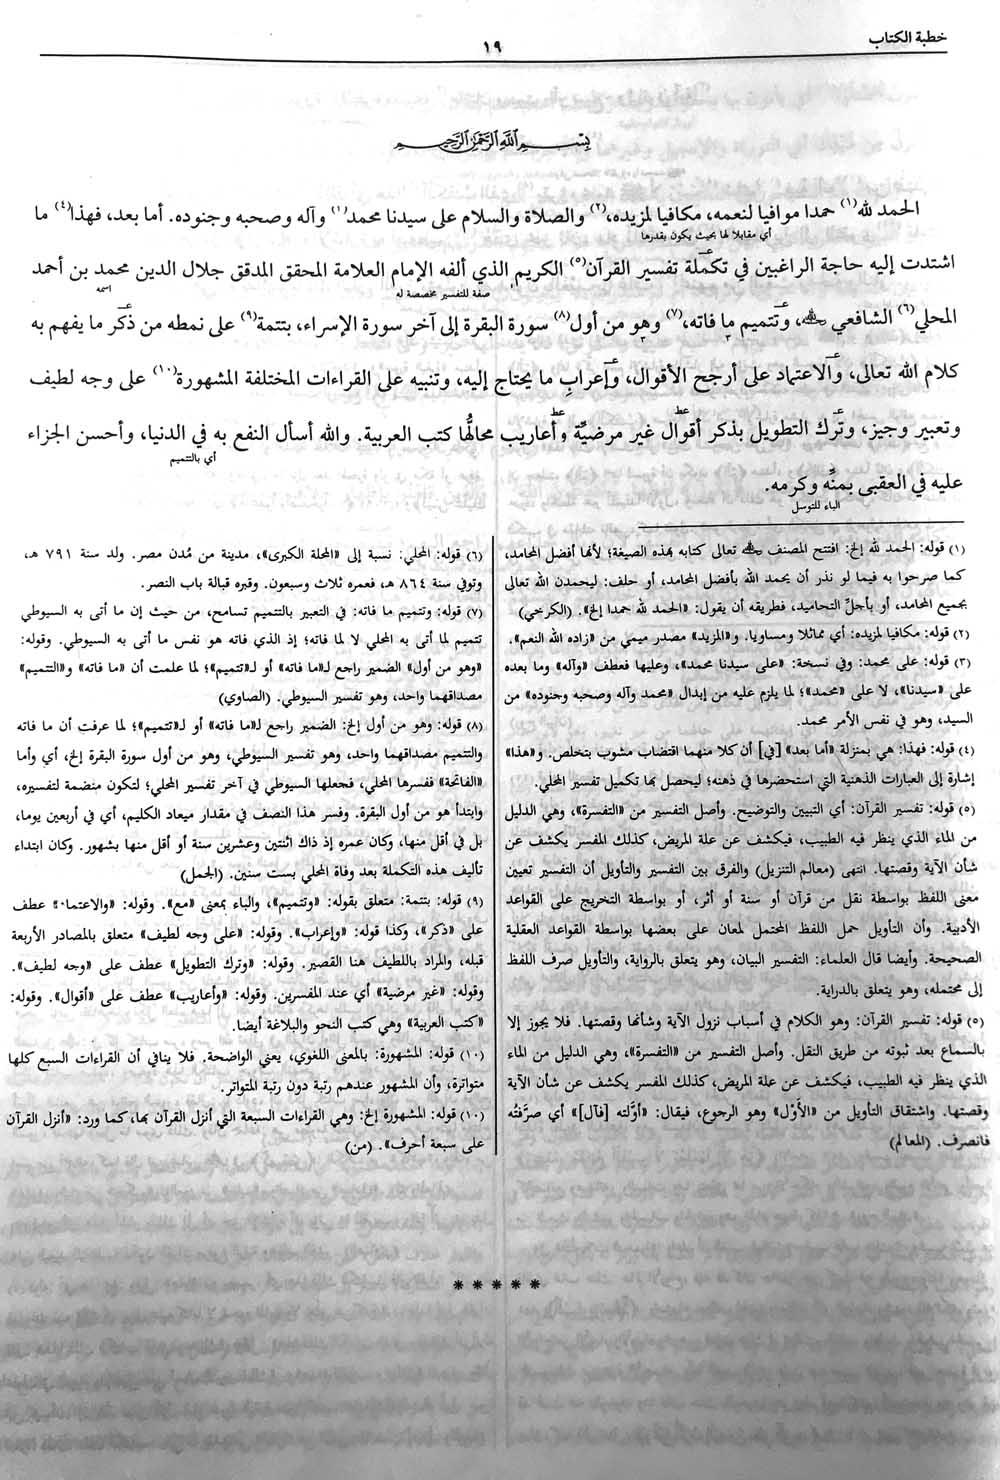 خطبة الكتاب
١٩
بسم الله الرحمن الرحيم
الحمد لله(١) حمدا موافيا لنعمه، مكافيا لمزيده،(٢) والصلاة والسلام على سيدنا محمد وآله وصحبه وجنوده. أما بعد، فهذا(٤) ما
أي مقابلا لها بحيث يكون بقدرها
اشتدت إليه حاجة الراغبين في تكملة تفسير القرآن(٥) الكريم الذي ألفه الإمام العلامة المحقق المدقق جلال الدين محمد بن أحمد
صفة للتفسير مخصصة له اسمه
المحلي(٦) الشافعي ﷺ، وتتميم ما فاته،(٧) وهو من أول(٨) سورة البقرة إلى آخر سورة الإسراء، بتتمة(٩) على نمطه من ذكر ما يفهم به
كلام الله تعالى، والاعتماد على أرجح الأقوال، وإعراب ما يحتاج إليه، وتنبيه على القراءات المختلفة المشهورة(١٠) على وجه لطيف
وتعبير وجيز، وترك التطويل بذكر أقوال غير مرضيِّة وأعاريب محالُّها كتب العربية. والله أسأل النفع به في الدنيا، وأحسن الجزاء
أي بالتتميم
عليه في العقبى بمنِّه وكرمه.
الباء للتوسل
(١) قوله: الحمد لله إلخ: افتتح المصنف تعالى كتابه بهذه الصيغة؛ لأنها أفضل المحامد،
كما صرحوا به فيما لو نذر أن يحمد الله بأفضل المحامد، أو حلف: ليحمدن الله تعالى
بجميع المحامد، أو بأجلِّ التحاميد، فطريقه أن يقول: «الحمد لله حمدا إلخ». (الكرخي)
(٢) قوله: مكافيا لمزيده: أي مماثلا ومساويا. و«المزيد» مصدر ميمي من «زاده الله النعم».
(٣) قوله: على محمد: وفي نسخة: «على سيدنا محمد»، وعليها فعطف «وآله» وما بعده
على «سيدنا»، لا على «محمد»؛ لما يلزم عليه من إبدال «محمد وآله وصحبه وجنوده» من
السيد، وهو في نفس الأمر محمد.
(٤) قوله: فهذا: هي بمنزلة «أما بعد» [في] أن كلا منهما اقتضاب مشوب بتخلص. و«هذا»
إشارة إلى العبارات الذهنية التي استحضرها في ذهنه؛ ليحصل بها تكميل تفسير المحلي.
(٥) قوله: تفسير القرآن: أي التبيين والتوضيح. وأصل التفسير من «التفسرة»، وهي الدليل
من الماء الذي ينظر فيه الطبيب، فيكشف عن علة المريض، كذلك المفسر يكشف عن
شأن الآية وقصتها. انتهى (معالم التنزيل) والفرق بين التفسير والتأويل أن التفسير تعيين
معنى اللفظ بواسطة نقل من قرآن أو سنة أو أثر، أو بواسطة التخريج على القواعد
الأدبية. وأن التأويل حمل اللفظ المحتمل لمعان على بعضها بواسطة القواعد العقلية
الصحيحة. وأيضا قال العلماء: التفسير البيان، وهو يتعلق بالرواية، والتأويل صرف اللفظ
إلى محتمله، وهو يتعلق بالدراية.
(٥) قوله: تفسير القرآن: وهو الكلام في أسباب نزول الآية وشأنها وقصتها. فلا يجوز إلا
بالسماع بعد ثبوته من طريق النقل. وأصل التفسير من «التفسرة»، وهي الدليل من الماء
الذي ينظر فيه الطبيب، فيكشف عن علة المريض، كذلك المفسر يكشف عن شأن الآية
وقصتها. واشتقاق التأويل من «الأَوْل» وهو الرجوع، فيقال: «أوَّلته [فآل]» أي صرَّفتُه
فانصرف. (المعالم)
(٦) قوله: المحلي: نسبة إلى «المحلة الكبرى»، مدينة من مُدن مصر. ولد سنة ٧٩١ هـ،
وتوفي سنة ٨٦٤ هـ، فعمره ثلاث وسبعون. وقبره قبالة باب النصر.
(٧) قوله: وتتميم ما فاته: في التعبير بالتتميم تسامح، من حيث إن ما أتى به السيوطي
تتميم لما أتى به المحلي لا لما فاته؛ إذ الذي فاته هو نفس ما أتى به السيوطي. وقوله:
«وهو من أول» الضمير راجع لـ«ما فاته» أو لـ«تتميم»؛ لما علمت أن «ما فاته» و«التتميم»
مصداقهما واحد، وهو تفسير السيوطي. (الصاوي)
(٨) قوله: وهو من أول إلخ: الضمير راجع لـ«ما فاته» أو لـ«تتميم»؛ لما عرفت أن ما فاته
والتتميم مصداقهما واحد، وهو تفسير السيوطي، وهو من أول سورة البقرة إلخ، أي وأما
«الفاتحة» ففسرها المحلي، فجعلها السيوطي في آخر تفسير المحلي؛ لتكون منضمة لتفسيره،
وابتدأ هو من أول البقرة. وفسر هذا النصف في مقدار ميعاد الكليم، أي في أربعين يوما،
بل في أقل منها، وكان عمره إذ ذاك اثنتين وعشرين سنة أو أقل منها بشهور. وكان ابتداء
تأليف هذه التكملة بعد وفاة المحلي بست سنين. (الجمل)
(٩) قوله: بتتمة: متعلق بقوله: «وتتميم»، والباء بمعنى «مع». وقوله: «والاعتماد» عطف
على «ذكر»، وكذا قوله: «وإعراب». وقوله: «على وجه لطيف» متعلق بالمصادر الأربعة
قبله، والمراد باللطيف هنا القصير. وقوله: «وترك التطويل» عطف على «وجه لطيف».
وقوله: «غير مرضية» أي عند المفسرين. وقوله: «وأعاريب» عطف على «أقوال». وقوله:
«كتب العربية» وهي كتب النحو والبلاغة أيضا.
(١٠) قوله: المشهورة: بالمعنى اللغوي، يعني الواضحة. فلا ينافي أن القراءات السبع كلها
متواترة، وأن المشهور عندهم رتبة دون رتبة المتواتر.
(١٠) قوله: المشهورة إلخ: وهي القراءات السبعة التي أنزل القرآن بها، كما ورد: «أنزل القرآن
على سبعة أحرف». (من)
*****